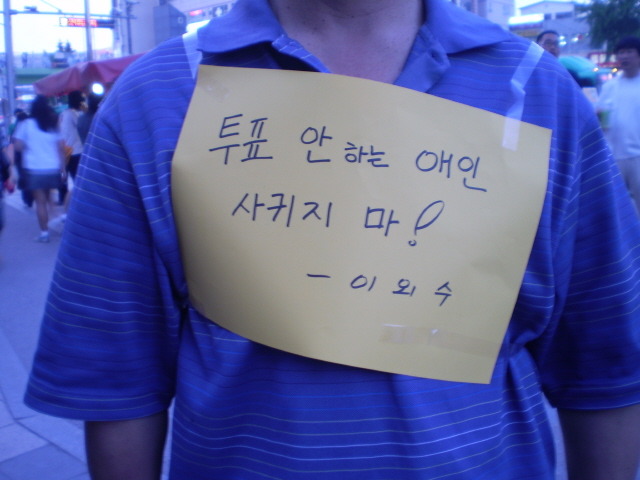 투표 안 하는 애인
사귀지 마!
- 이외수